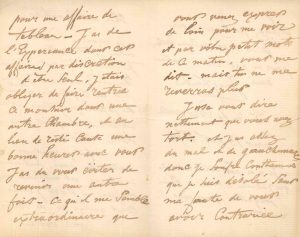 pour une affaire de
tableau – J'ai de
l'Expérience dans ces
affaires par discrétion
d'être Seul, j'étais
obligée de faire rentrer
ce monsieur dans une
autre chambre, et au
lieu de rester toute une
bonne heure avec vous
j'ai du vous éviter de
revenir une autre
fois – Ce qu'il me Semble
extraordinaire que
vous venez exprès
de loin pour me voir
et par votre petit mot
de ce matin, vous me
dit – mais tu ne me
reverras plus
J'ose vous dire
nettement que vous avez
tort. et j'ai
du mal de gauchement
donc je Souffre Continuement
que je suis désolé sans
ma faute de vous
avoir Contrariée